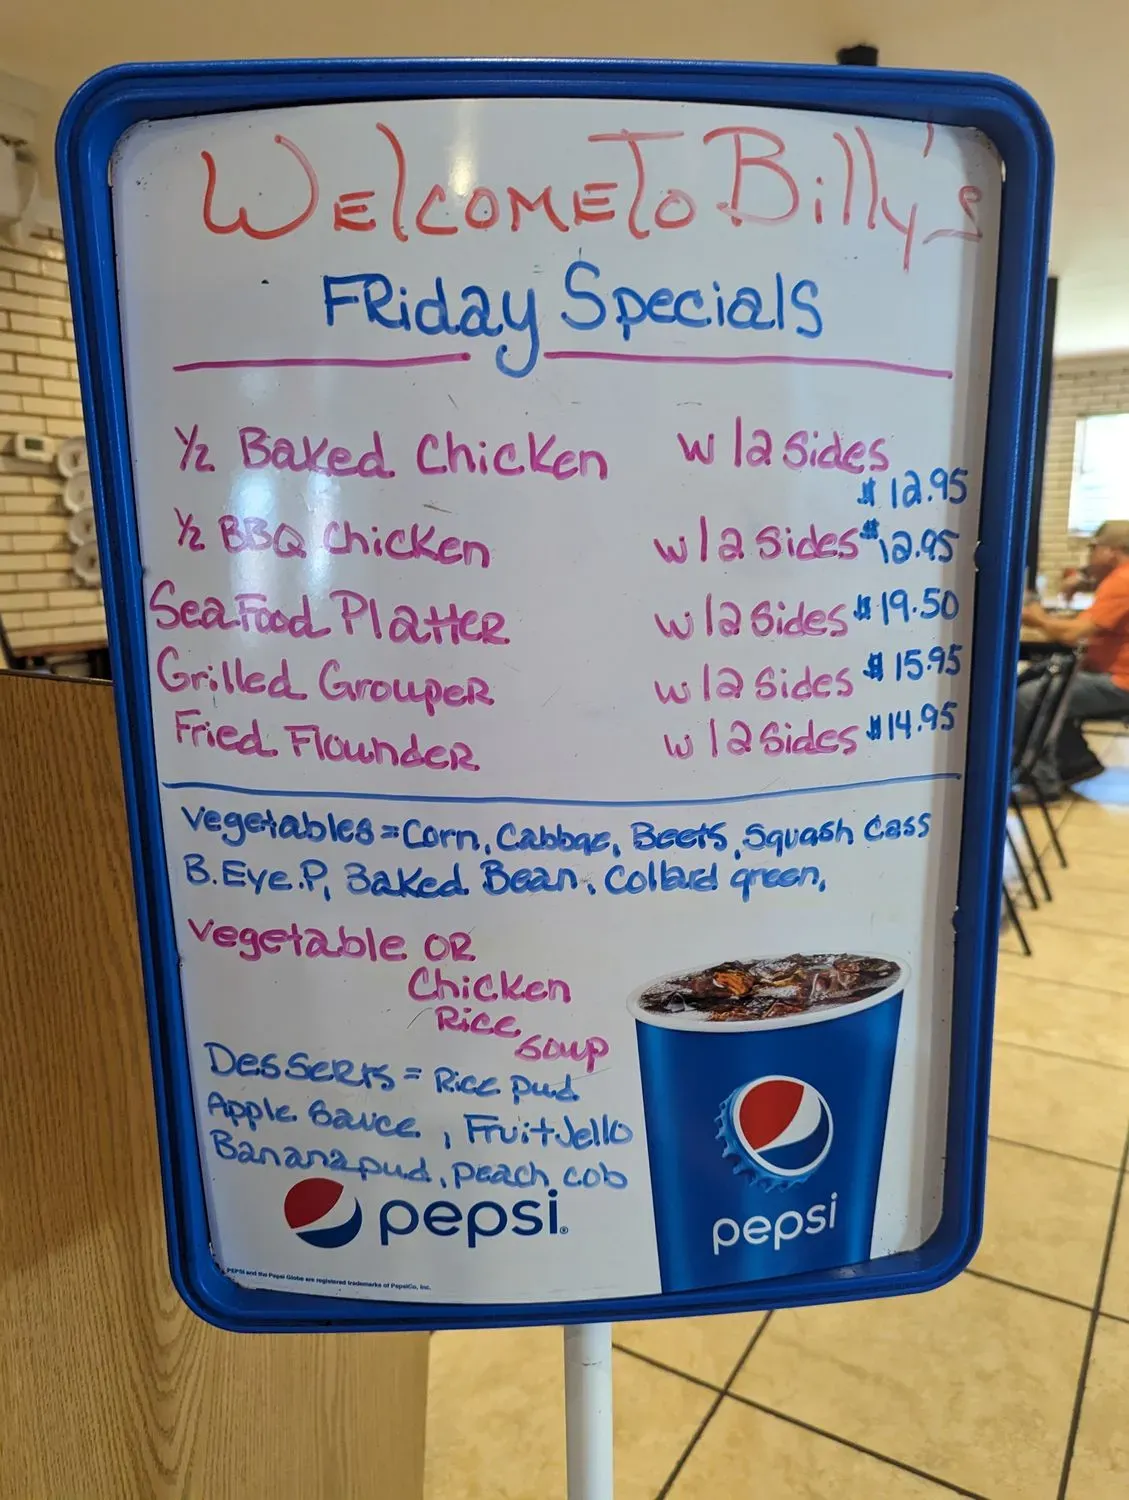 WELCOME TO Billy's
FRiday Specials
1/2 Baked Chicken w/2 Sides
$12.95
1/2 BBQ Chicken w/2 Sides $12.95
SeaFood PlatteR w/2 Sides $19.50
Grilled GroupeR w/2 Sides $15.95
Fried FloundeR w/2 Sides $14.95
Vegetables = Corn, Cabbge, Beets, Squash Cass
B. Eye. P, Baked Bean, Collard green,
Vegetable OR
Chicken
Rice
Soup
Desserts = Rice pud
Apple Sauce, Fruit Jello
Banana pud, peach cob
pepsi®
pepsi
PEPSI and the Pepsi Globe are registered trademarks of PepsiCo, Inc.